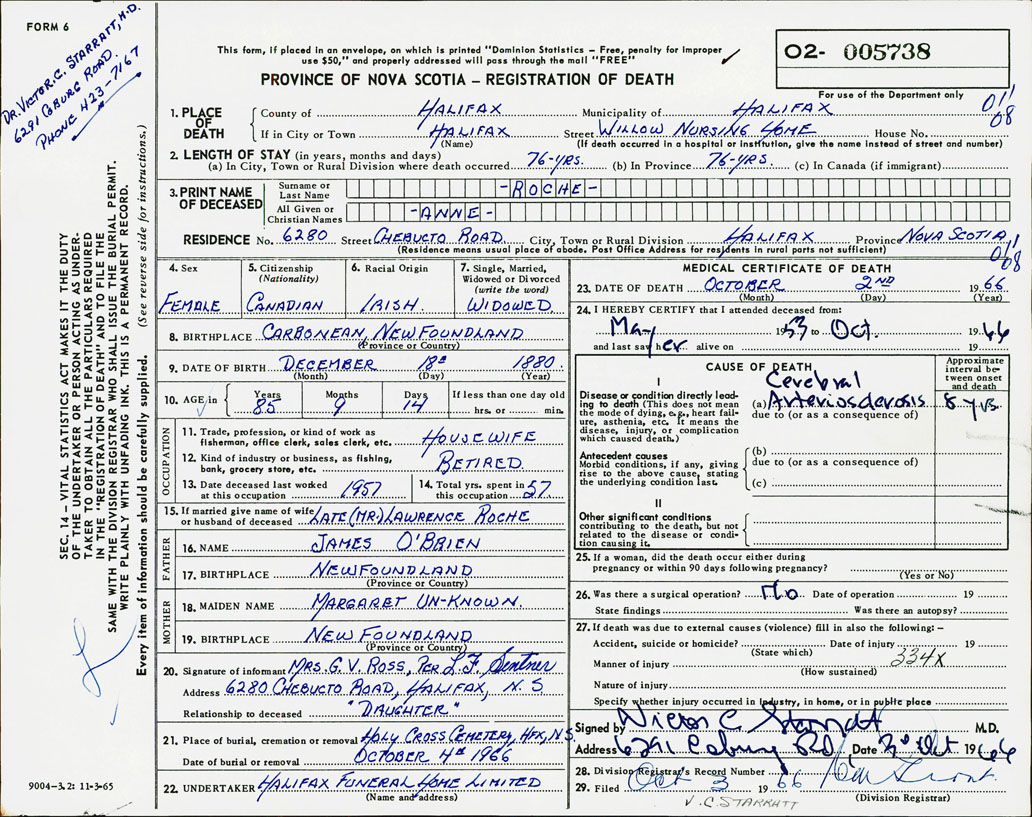 FORM 6
DR. VICTOR. C. STARRATT, M.D.
6291 COBURG ROAD.
PHONE 423-7167
This form, if placed in an envelope, on which is printed "Dominion Statistics – Free, penalty for improper
use $50," and properly addressed will pass through the mail "FREE"
PROVINCE OF NOVA SCOTIA – REGISTRATION OF DEATH
O2- 005738
For use of the Department only
011
08
1. PLACE OF DEATH
County of HALIFAX Municipality of HALIFAX
If in City or Town HALIFAX Street WILLOW NURSING HOME House No.
(Name) (If death occurred in a hospital or institution, give the name instead of street and number)
2. LENGTH OF STAY (in years, months and days)
(a) In City, Town or Rural Division where death occurred 76-YRS. (b) In Province 76-YRS. (c) In Canada (if immigrant)
3. PRINT NAME OF DECEASED
Surname or Last Name -ROCHE-
All Given or Christian Names -ANNE-
RESIDENCE No. 6280 Street CHEBUCTO ROAD. City, Town or Rural Division HALIFAX Province NOVA SCOTIA
(Residence means usual place of abode. Post Office Address for residents in rural parts not sufficient)
011
008
4. Sex
FEMALE
5. Citizenship
(Nationality)
CANADIAN
6. Racial Origin
IRISH.
7. Single, Married,
Widowed or Divorced
(write the word)
WIDOWED.
8. BIRTHPLACE CARBONEAN, NEWFOUNDLAND
(Province or Country)
9. DATE OF BIRTH DECEMBER 18th 1880.
(Month) (Day) (Year)
10. AGE in Years Months Days If less than one day old
85 9 14 hrs. or min.
OCCUPATION
11. Trade, profession, or kind of work as
fisherman, office clerk, sales clerk, etc. HOUSEWIFE
12. Kind of industry or business, as fishing,
bank, grocery store, etc. RETIRED.
13. Date deceased last worked
at this occupation 1957
14. Total yrs. spent in
this occupation 57
15. If married give name of wife
or husband of deceased LATE (MR.) LAWRENCE ROCHE
FATHER
16. NAME JAMES O'BRIEN
17. BIRTHPLACE NEWFOUNDLAND
(Province or Country)
MOTHER
18. MAIDEN NAME MARGARET UN-KNOWN.
19. BIRTHPLACE NEW FOUNDLAND
(Province or Country)
20. Signature of informant MRS. G. V. ROSS, PER L.F. Sentner
Address 6280 CHEBUCTO ROAD, HALIFAX, N. S.
Relationship to deceased "DAUGHTER"
21. Place of burial, cremation or removal HOLY CROSS CEMETERY, HFX, N.S.
Date of burial or removal OCTOBER 4th 1966
22. UNDERTAKER HALIFAX FUNERAL HOME LIMITED
(Name and address)
MEDICAL CERTIFICATE OF DEATH
23. DATE OF DEATH OCTOBER 2ND 1966
(Month) (Day) (Year)
24. I HEREBY CERTIFY that I attended deceased from:
May 1953 to Oct. 1966
and last saw her alive on 19
CAUSE OF DEATH
Approximate
interval be-
tween onset
and death
I
Disease or condition directly lead-
ing to death (This does not mean
the mode of dying, e.g., heart fail-
ure, asthenia, etc. It means the
disease, injury, or complication
which caused death.)
Cerebral
(a) Arteriosclerosis 8 yrs
due to (or as a consequence of)
Antecedent causes
Morbid conditions, if any, giving
rise to the above cause, stating
the underlying condition last.
(b)
due to (or as a consequence of)
(c)
II
Other significant conditions
contributing to the death, but not
related to the disease or condi-
tion causing it.
25. If a woman, did the death occur either during
pregnancy or within 90 days following pregnancy?
(Yes or No)
26. Was there a surgical operation? No Date of operation 19
State findings Was there an autopsy?
27. If death was due to external causes (violence) fill in also the following: –
Accident, suicide or homicide? Date of injury 19
(State which)
334X
Manner of injury
(How sustained)
Nature of injury
Specify whether injury occurred in industry, in home, or in public place
Signed by Victor C Starratt M.D.
Address 6291 Coburg Rd. Date 3rd Oct 1966
28. Division Registrar's Record Number
29. Filed Oct 3 1966
(Division Registrar)
V. C STARRATT
SEC. 14 – VITAL STATISTICS ACT MAKES IT THE DUTY
OF THE UNDERTAKER OR PERSON ACTING AS UNDER-
TAKER TO OBTAIN ALL THE PARTICULARS REQUIRED
IN THE "REGISTRATION OF DEATH" AND TO FILE THE
SAME WITH THE DIVISION REGISTRAR WHO SHALL ISSUE THE BURIAL PERMIT.
WRITE PLAINLY WITH UNFADING INK. THIS IS A PERMANENT RECORD.
Every item of information should be carefully supplied. (See reverse side for instructions.)
9004-3.2: 11-3-65